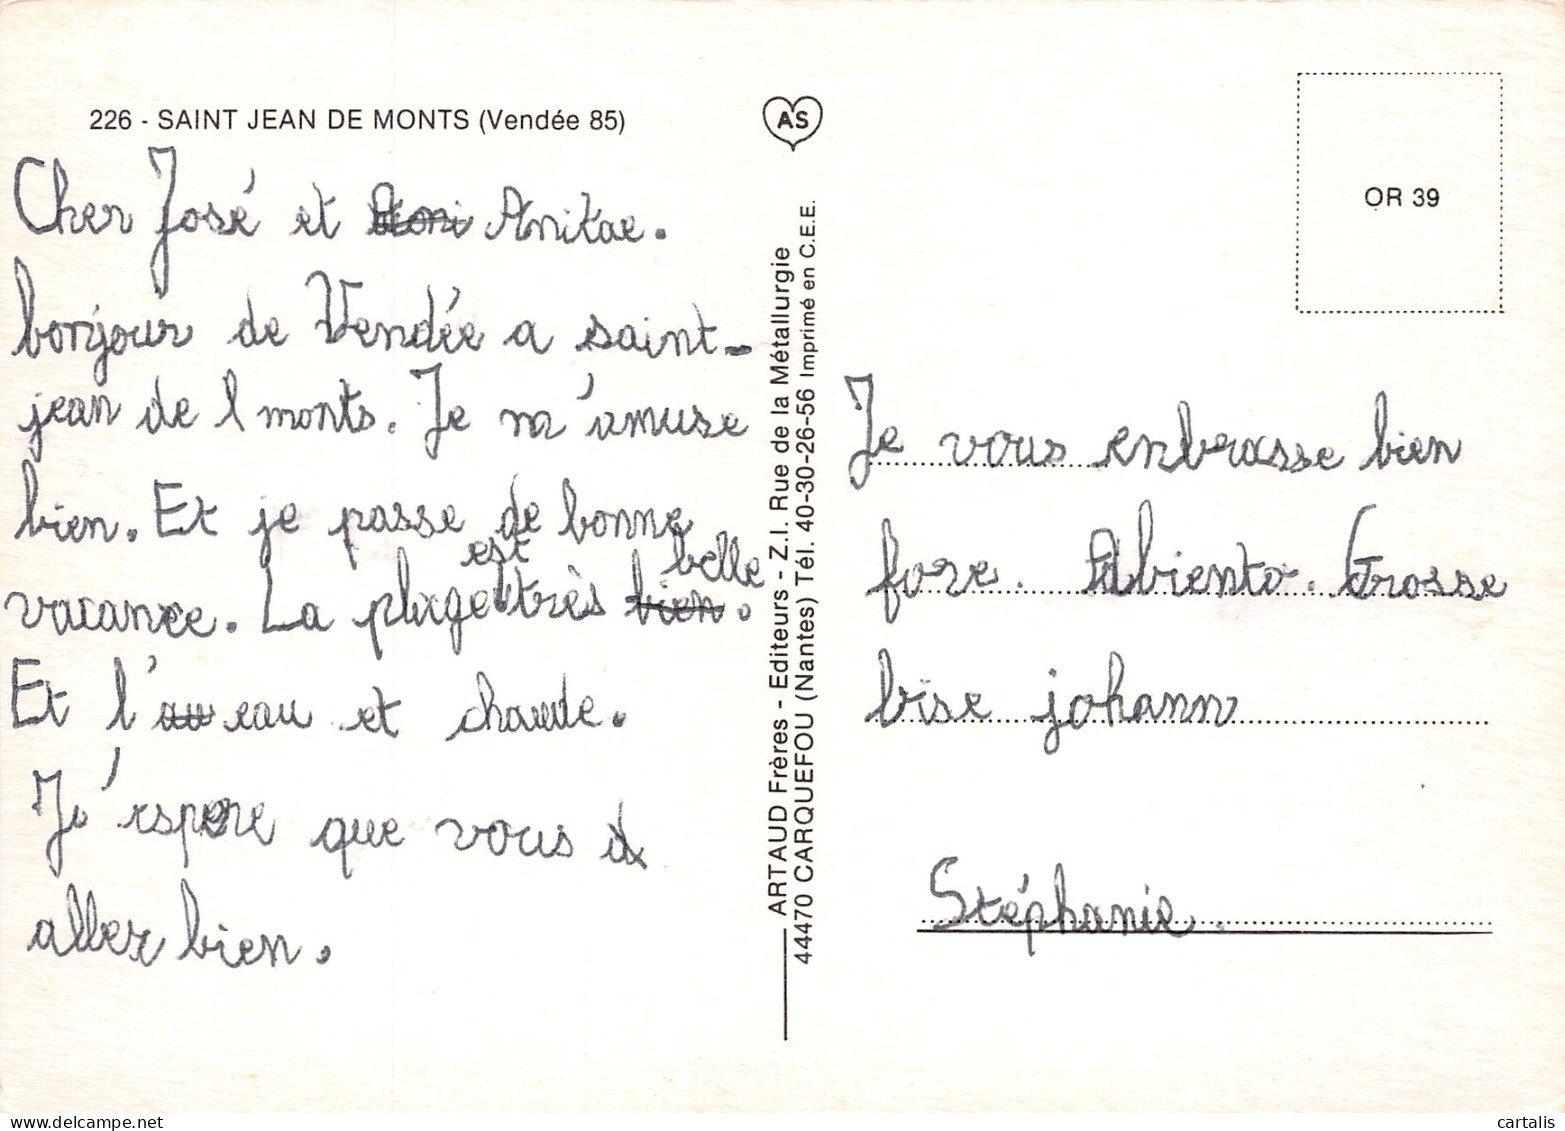 226 - SAINT JEAN DE MONTS (Vendée 85)
AS
OR 39
Cher José et Anitae.
bonjour de Vendée a saint-
jean de l monts. Je m'amuse
bien. Et je passe de bonne
vacance. La plage est très bien belle.
Et l'au eau et chaude.
Je'espere que vous
aller bien.
ARTAUD Frères - Editeurs - Z.I. Rue de la Métallurgie
44470 CARQUEFOU (Nantes) Tél. 40-30-26-56 Imprimé en C.E.E.
Je vous enbrasse bien
fore. Abiento. Grosse
bise johann
Stéphanie.
www.delcampe.net
cartalis